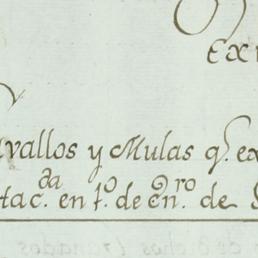 Ex
avallos y Mulas q.e ex
tac.da en 1.o de En.ro de